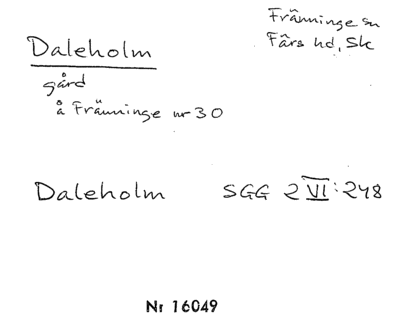 Fränninge sn
Färs hd, Sk
Daleholm
gård
å Fränninge nr 30
Daleholm SGG 2 VI:248
Nr 16049